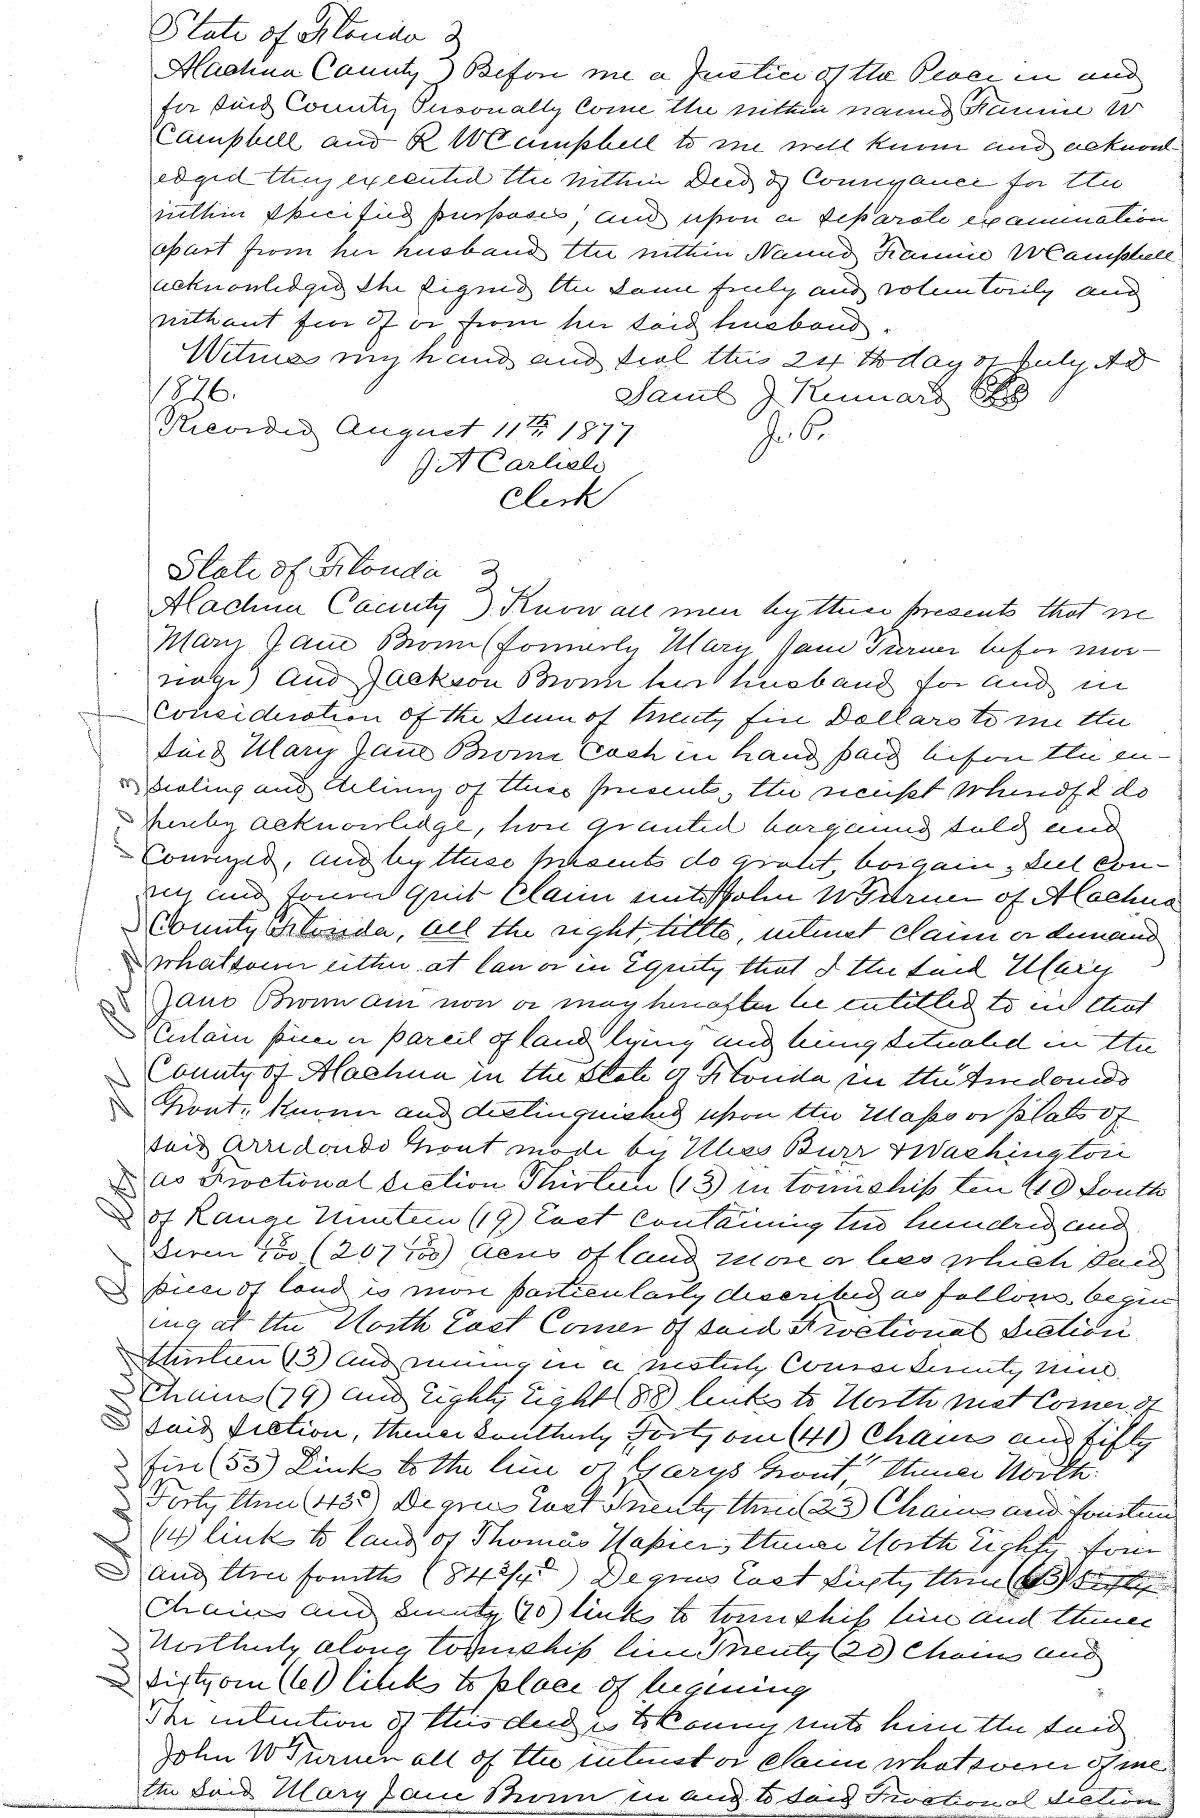 State of Florida }
Alachua County } Before me a Justice of the Peace in and
for said County Personally Come the within named Fannie W
Campbell and R W Campbell to me well known and acknowl-
edged they executed the within Deed of Conveyance for the
within specified purposes; and upon a separate examination
apart from her husband the within Named Fannie W Campbell
acknowledged she signed the same freely and voluntarily and
without fear of or from her said husband.
Witness my hand and seal this 24th day of July AD
1876. Saml J Kennard
Recorded August 11th 1877 J. P.
J A Carlisle
Clerk
State of Florida }
Alachua County } Know all men by these presents that we
Mary Jane Brown (formerly Mary Jane Turner befor mar-
riage) and Jackson Brown her husband for and in
Consideration of the Sum of twenty five Dollars to me the
said Mary Jane Brown Cash in hand paid before the en-
sealing and delivery of these presents, the receipt whereof I do
hereby acknowledge, have granted bargained sold and
Conveyed, and by these presents do grant, bargain, sell con-
vey and forever quit Claim unto John W Turner of Alachua
County Florida, all the right, tittle, interest claim or demand
whatsoever either at law or in Equity that I the said Mary
Jane Brown am now or may hereafter be entitled to in that
Certain piece or parcel of land lying and being situated in the
County of Alachua in the State of Florida in the "Arredondo
Grant" known and distinguished upon the Maps or plats of
said Arredondo Grant made by Mess Burr & Washington
as Fractional Section Thirteen (13) in township ten (10) South
of Range Nineteen (19) East Containing two hundred and
Seven (207 acres of land more or less which said
piece of land is more particularly described as follows, begin
ing at the North East Corner of said Fractional Section
thirteen (13) and runing in a westerly Course Seventy nine
Chains (79) and Eighty Eight (88) links to North west Corner of
said Section, thence Southerly Forty one (41) Chains and fifty
five (55) Links to the line of "Garys Grant," thence North
Forty three (43°) Degrees East Twenty three (23) Chains and fourteen
(14) links to land of Thomas Napier, thence North Eighty four
and three fourths (84 3/4°) Degrees East Sixty three (63)
Chains and Seventy (70) links to township line and thence
Northerly along township line Twenty (20) Chains and
Sixty one (61) links to place of begining
The intention of this deed is to Convey unto him the said
John W Turner all of the interest or claim whatsoever of me
the said Mary Jane Brown in and to said Fractional Section